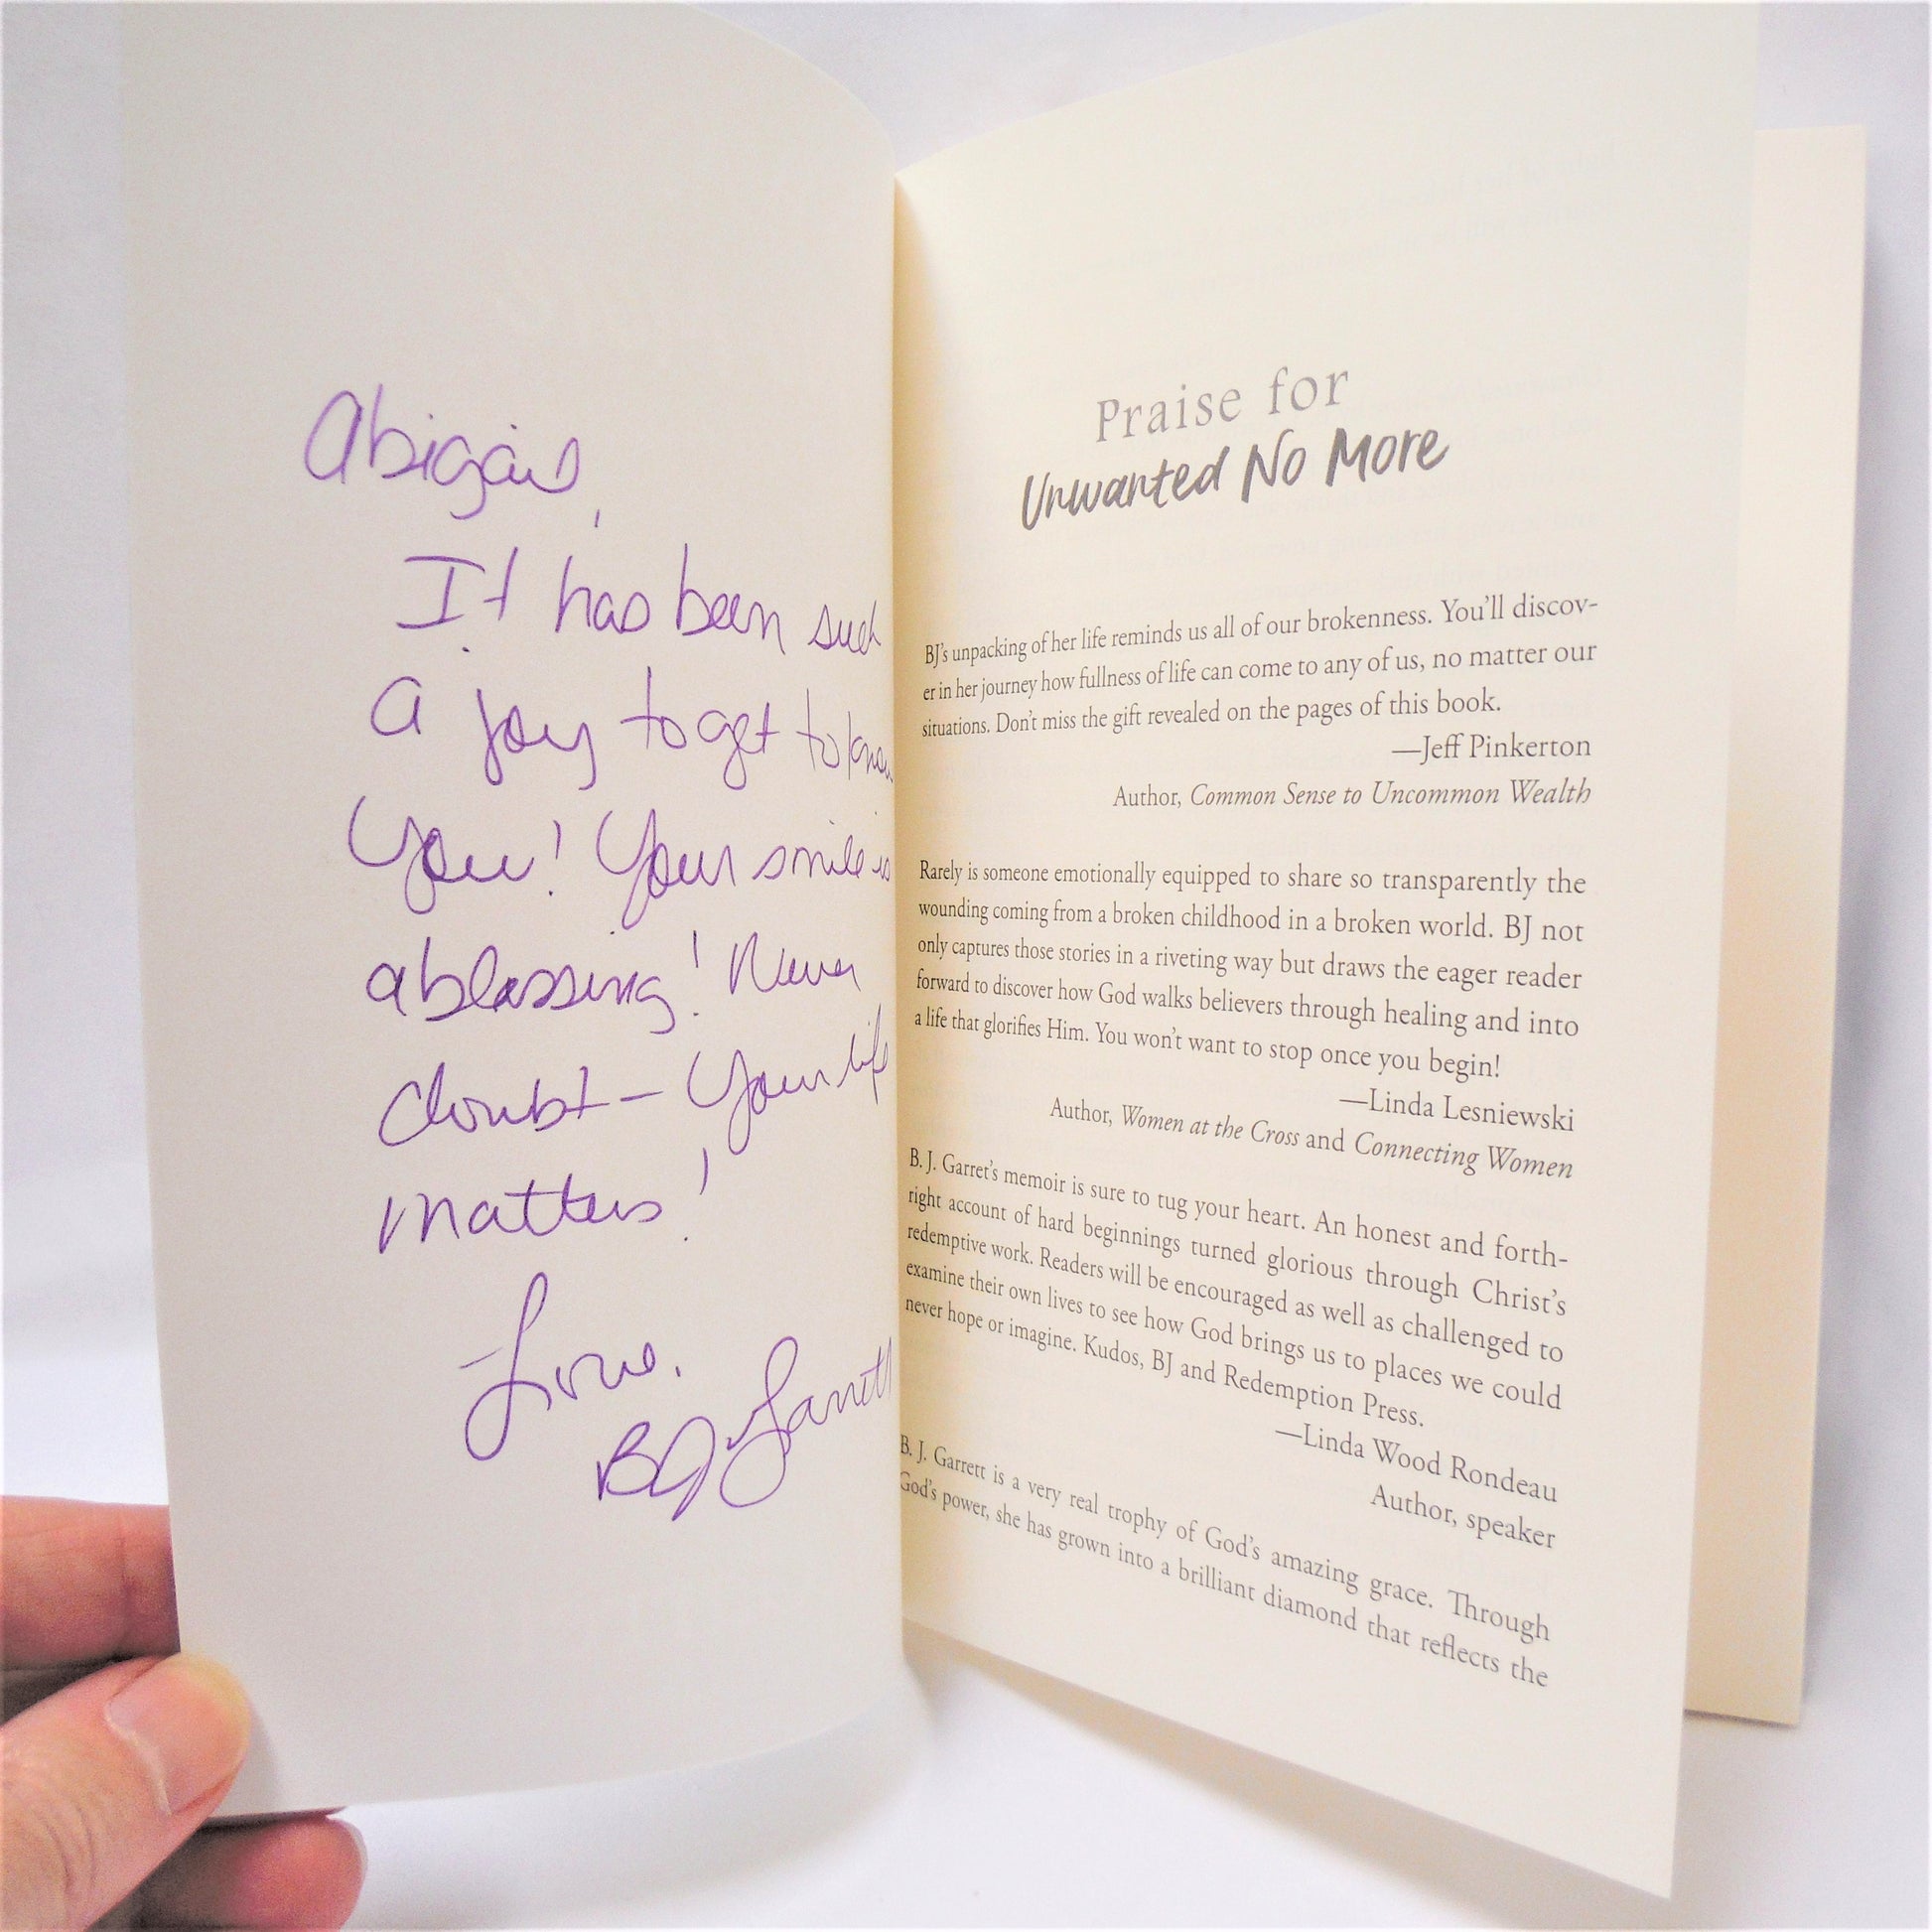 Abigail,
It has been such
a joy to get to know
you! Your smile is
a blessing! Never
doubt — Your life
matters!
Love,
BJ Garrett
Praise for
Unwanted No More
BJ's unpacking of her life reminds us all of our brokenness. You'll discov-
er in her journey how fullness of life can come to any of us, no matter our
situations. Don't miss the gift revealed on the pages of this book.
—Jeff Pinkerton
Author, Common Sense to Uncommon Wealth
Rarely is someone emotionally equipped to share so transparently the
wounding coming from a broken childhood in a broken world. BJ not
only captures those stories in a riveting way but draws the eager reader
forward to discover how God walks believers through healing and into
a life that glorifies Him. You won't want to stop once you begin!
—Linda Lesniewski
Author, Women at the Cross and Connecting Women
B. J. Garret's memoir is sure to tug your heart. An honest and forth-
right account of hard beginnings turned glorious through Christ's
redemptive work. Readers will be encouraged as well as challenged to
examine their own lives to see how God brings us to places we could
never hope or imagine. Kudos, BJ and Redemption Press.
—Linda Wood Rondeau
Author, speaker
B. J. Garrett is a very real trophy of God's amazing grace. Through
God's power, she has grown into a brilliant diamond that reflects the